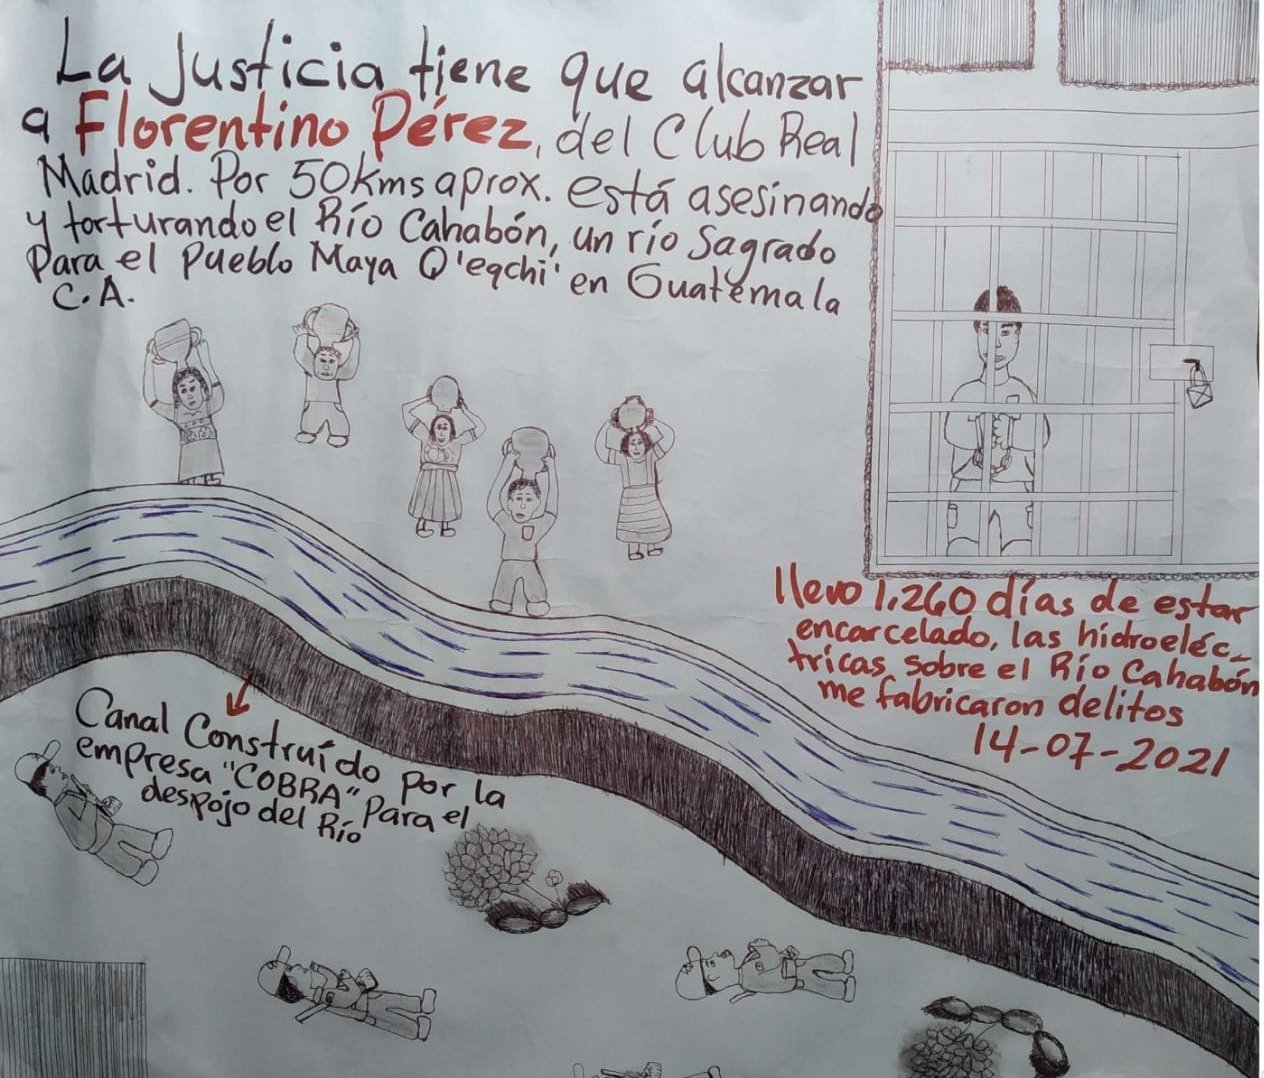 La Justicia tiene que alcanzar
a Florentino Pérez, del Club Real
Madrid. Por 50kms aprox. está asesinando
y torturando el Río Cahabón, un río Sagrado
Para el Pueblo Maya Q'eqchi' en Guatemala
C.A.
llevo 1,260 días de estar
encarcelado, las hidroeléc-
tricas sobre el Río Cahabón
me fabricaron delitos
14-07-2021
Canal Construído por la
empresa "COBRA" Para el
despojo del Río